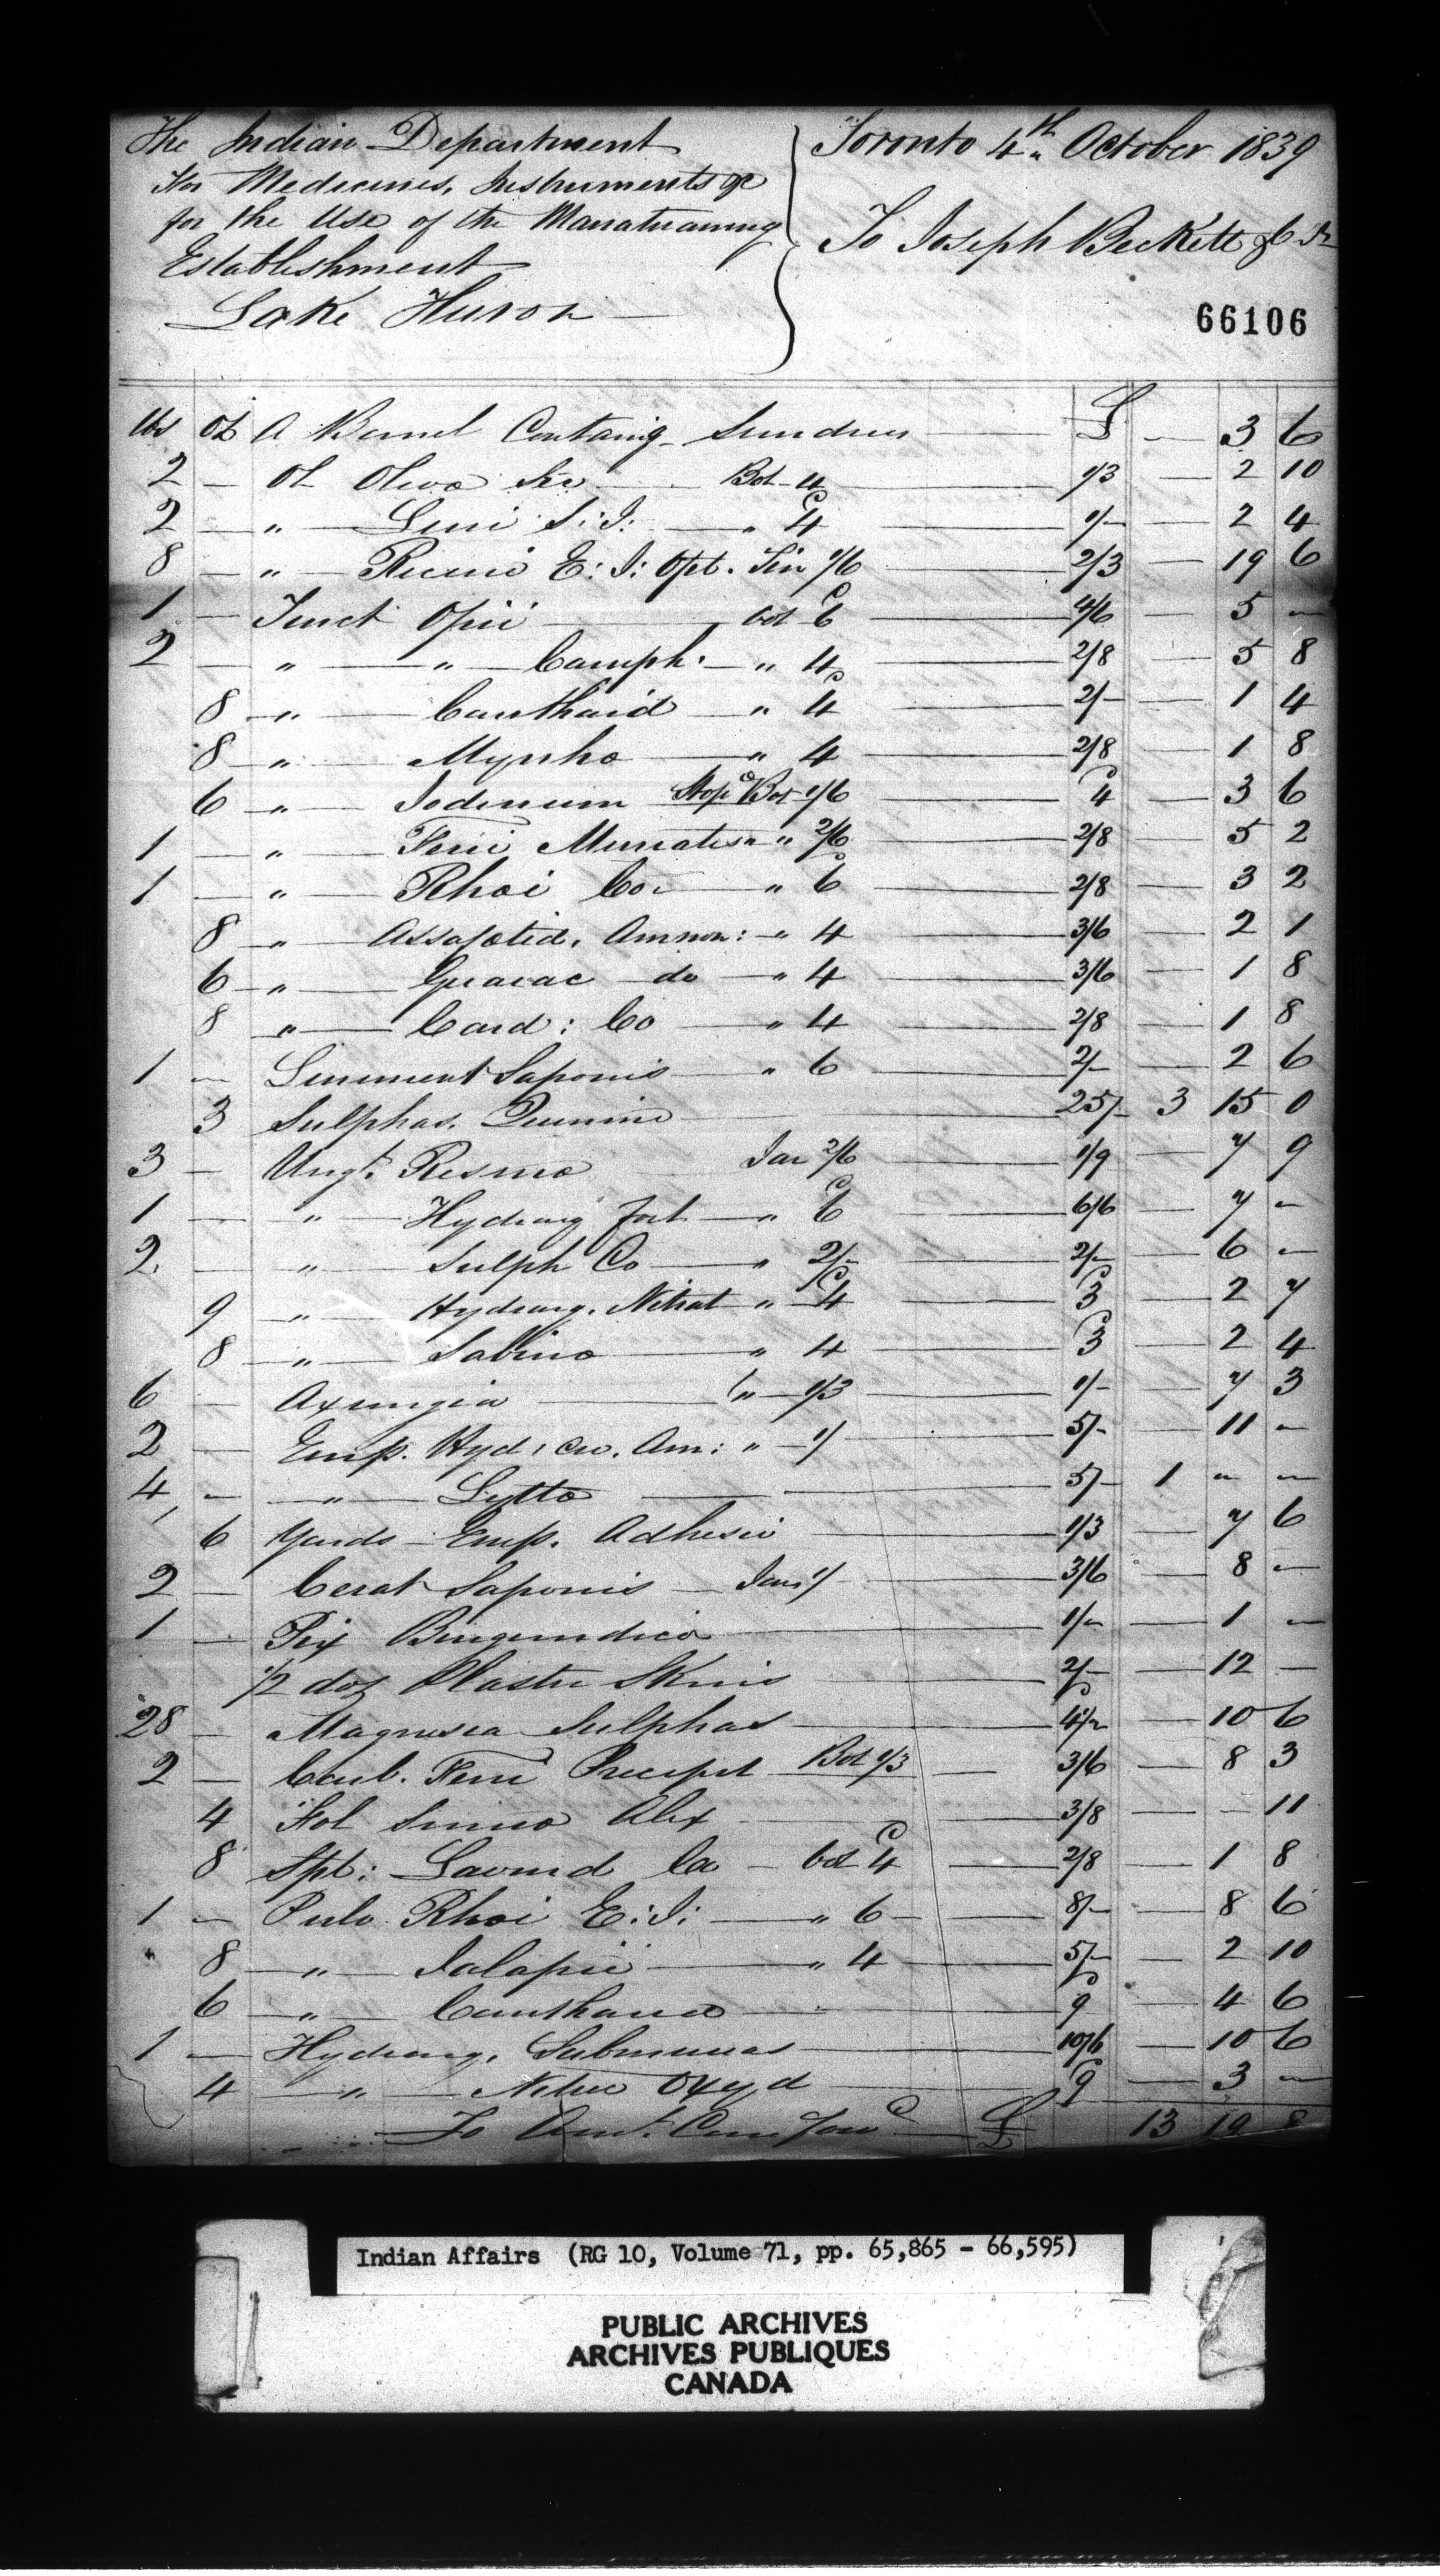 The Indian Department
For Medicines, Instruments &c
for the Use of the Manatuaning
Establishment
Lake Huron
Toronto 4th October 1839
To Joseph Beckett & Co Dr
66106
lbs oz A Barrel Containg Sundries £ — 3 6
2 — Ol Olivæ Bot 4 1/3 — 2 10
2 — " Lini S: I: " 4d 1/- — 2 4
8 — " Ricini E: I: Opt. Tin 1/6 2/3 — 19 6
1 — Tinct Opii bot 6d 4/6 — 5 -
2 — " " Camph: " 4 2/8 — 5 8
8 " Canthaid " 4d 2/- — 1 4
8 " Myrrha " 4 2/8 — 1 8
6 " Iodinum Stopd Bot 1/6 4d — 3 6
1 — " Ferri Muriates " 2/6 2/8 — 5 2
1 — " Rhæi Co " 6d 2/8 — 3 2
8 " Assafœtid. Ammon: " 4 3/6 — 2 1
6 " Guaiac do " 4 3/6 — 1 8
8 " Card: Co " 4 2/8 — 1 8
1 — Liniment Saponis " 6 2/- — 2 6
3 Sulphas. Quinine 25/- 3 15 0
3 — Ungt. Resinæ Jar 2/6 1/9 — 7 9
1 — " Hydrarg fort " 6d 6/6 — 7 -
2 — " Sulph Co " 2/- 2/- — 6 -
9 " Hydrarg. Nitrat " 4d 3d — 2 7
8 " Sabinæ " 4 3d — 2 4
6 — Axungia " 1/3 1/- — 7 3
2 — Emp. Hyd. cu. Am: " 1/ 5/- — 11 -
4 — " Lyttæ 5/- 1 - -
6 Yards Emp. Adhesiv 1/3 — 7 6
2 — Cerat Saponis Jar 1/ 3/6 — 8 -
1 — Pix Burgundica 1/- — 1 -
1/2 doz Plaster Skins 2/- — 12 —
28 — Magnesia Sulphas 4½d — 10 6
2 — Carb. Ferri Precipit Bot 1/3 3/6 — 8 3
4 Fol Sennæ Alex 3/8 — - 11
8 Spt: Lavend Co bot 4d 2/8 — 1 8
1 — Pulv Rhæi E: I: " 6 8/- — 8 6
8 " Jalapii " 4 5/- — 2 10
6 " Cantharid 9d — 4 6
1 — Hydrarg. Submurias 10/6 — 10 6
4 — " Nitric Oxyd 9d — 3 -
To Amt. Car Ford £ 13 19 8
Indian Affairs (RG 10, Volume 71, pp. 65,865 - 66,595)
PUBLIC ARCHIVES
ARCHIVES PUBLIQUES
CANADA